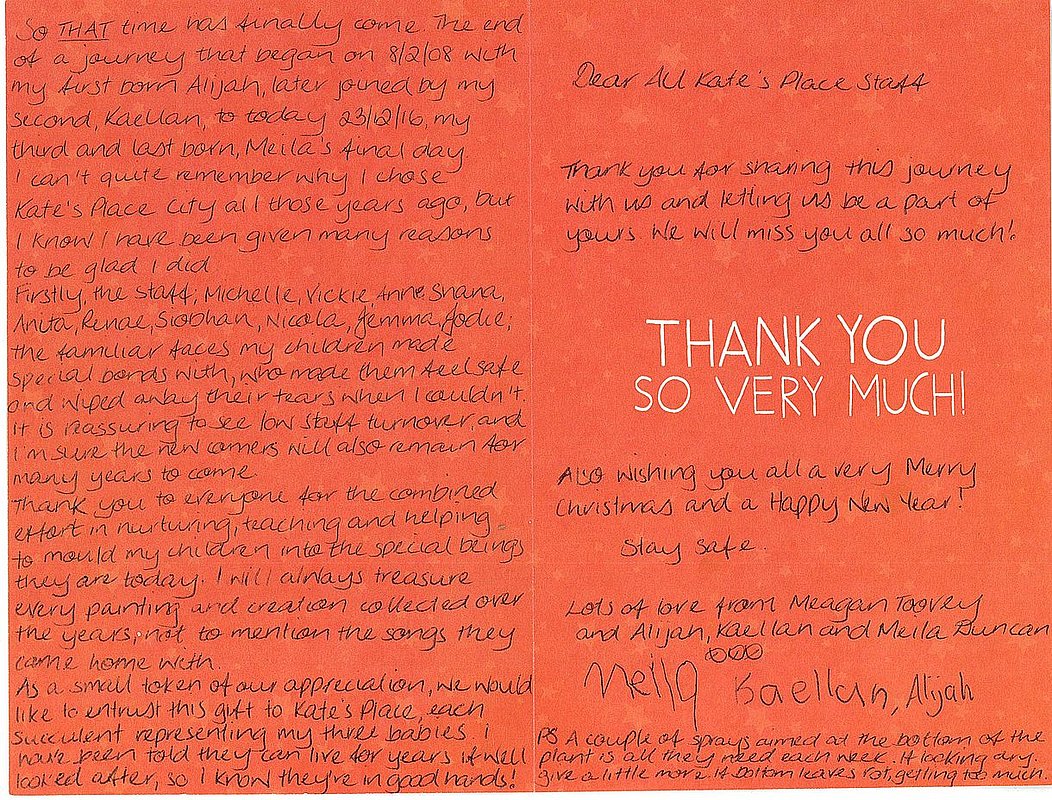 So THAT time has finally come. The end
of a journey that began on 8/2/08 with
my first born Alijah, later joined by my
second, Kaellan, to today 23/12/16, my
third and last born, Meila's final day.
I can't quite remember why I chose
Kate's Place City all those years ago, but
I know I have been given many reasons
to be glad I did.
Firstly, the staff; Michelle, Vickie, Anne, Shana,
Anita, Renae, Siobhan, Nicola, Jemma, Jodie;
the familiar faces my children made
special bonds with, who made them feel safe
and wiped away their tears when I couldn't.
It is reassuring to see low staff turnover, and
I'm sure the new comers will also remain for
many years to come.
Thank you to everyone for the combined
effort in nurturing, teaching and helping
to mould my children into the special beings
they are today. I will always treasure
every painting and creation collected over
the years, not to mention the songs they
came home with.
As a small token of our appreciation, we would
like to entrust this gift to Kate's Place, each
succulent representing my three babies. I
have been told they can live for years if well
looked after, so I know they're in good hands!
Dear All Kate's Place Staff
Thank you for sharing this journey
with us and letting us be a part of
yours. We will miss you all so much!
THANK YOU
SO VERY MUCH!
Also wishing you all a very Merry
Christmas and a Happy New Year!
Stay safe.
Lots of love from Meagan Toovey
and Alijah, Kaellan and Meila Duncan
Meila Kaellan, Alijah
PS A couple of sprays aimed at the bottom of the
plant is all they need each week. If looking dry,
give a little more. If bottom leaves rot, getting too much.